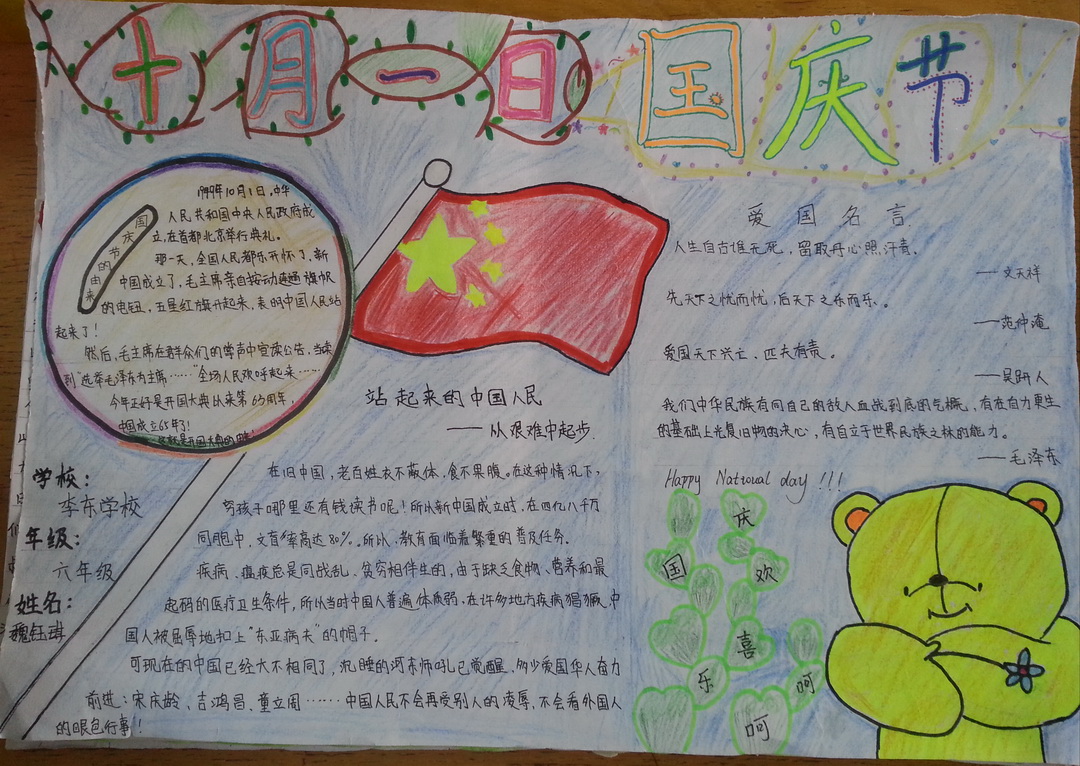 十月一日 国庆节
国庆节的由来
1949年10月1日,中华
人民共和国中央人民政府成
立,在首都北京举行典礼。
那一天,全国人民都乐开怀了,新
中国成立了,毛主席亲自按动连通旗帜
的电钮,五星红旗升起来,表明中国人民站
起来了!
然后,毛主席在群众们的掌声中宣读公告,当读
到“选举毛泽东为主席……”全场人民欢呼起来……
今年正好是开国大典以来第63周年,
中国成立65年了!
学校:
李东学校
年级:
六年级
姓名:
魏钰琪
站起来的中国人民
——从艰难中起步
在旧中国,老百姓衣不蔽体,食不果腹。在这种情况下,
穷孩子哪里还有钱读书呢!所以新中国成立时,在四亿八千万
同胞中,文盲率高达80%。所以,教育面临着繁重的普及任务.
疾病、瘟疫总是同战乱、贫穷相伴生的,由于缺乏食物、营养和最
起码的医疗卫生条件,所以当时中国人普遍体质弱.在许多地方疾病猖獗.中
国人被屈辱地扣上“东亚病夫”的帽子.
可现在的中国已经大不相同了,沉睡的河东师吼已觉醒.多少爱国华人奋力
前进:宋庆龄、吉鸿昌、童立周……中国人民不会再受别人的凌辱,不会看外国人
的眼色行事!
爱国名言
人生自古谁无死,留取丹心照汗青.
——文天祥
先天下之忧而忧,后天下之乐而乐.
——范仲淹
爱国天下兴亡.匹夫有责。
——吴趼人
我们中华民族有同自己的敌人血战到底的气概,有在自力更生
的基础上光复旧物的决心,有自立于世界民族之林的能力。
——毛泽东
Happy Natioual day !!!
国庆
欢
喜
乐
呵
呵